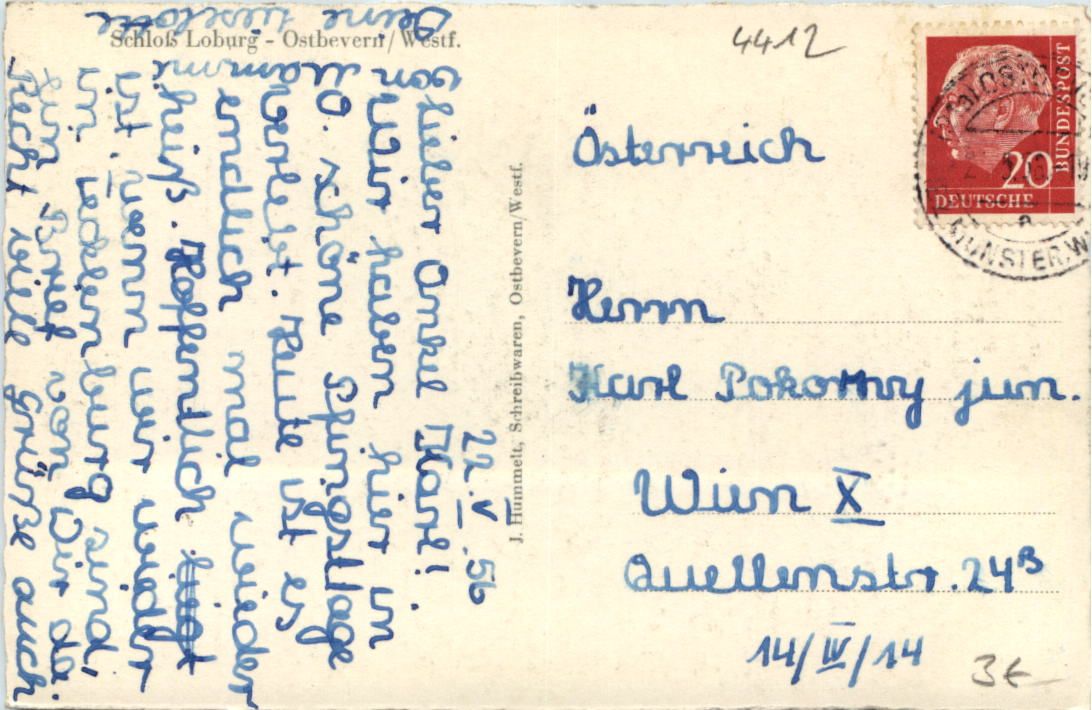 Schloß Loburg - Ostbevern/Westf.
22.V.56
Lieber Onkel Karl!
Wir haben hier in
O. schöne Pfingsttage
verlebt. Heute ist es
endlich mal wieder
heiß. Hoffentlich liegt
ist, wenn wir wieder
in Tecklenburg sind,
ein Brief von Dir da.
Recht viele Grüße auch
von Mammi
Deine Liselotte
J. Hummelt, Schreibwaren, Ostbevern/Westf.
4412
20
DEUTSCHE
BUNDESPOST
MÜNSTER.W
Österreich
Herrn
Karl Pokorny jun.
Wien X
Quellenstr. 24B
14/IV/14
3€